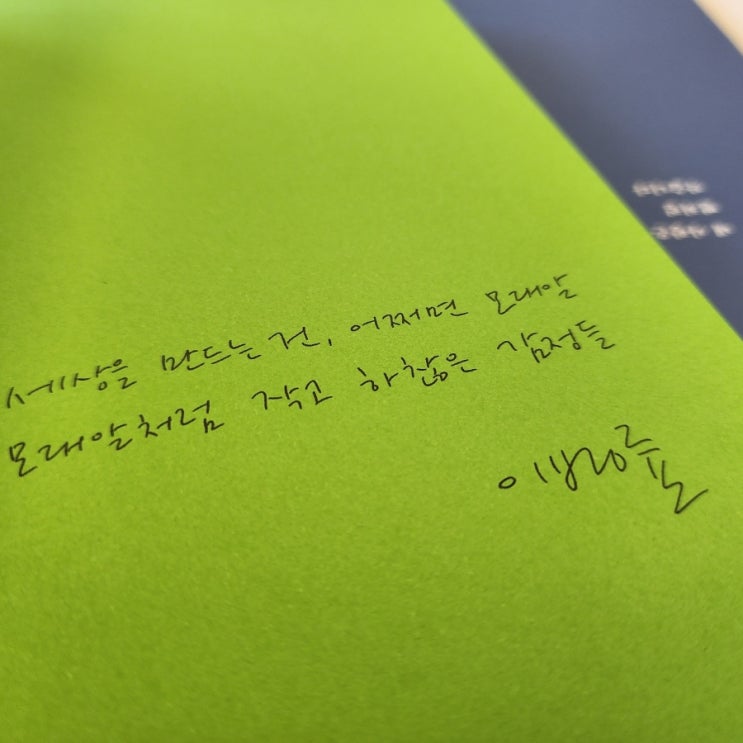 세상을 만드는 건, 어쩌면 모래알
모래알처럼 작고 하찮은 감정들